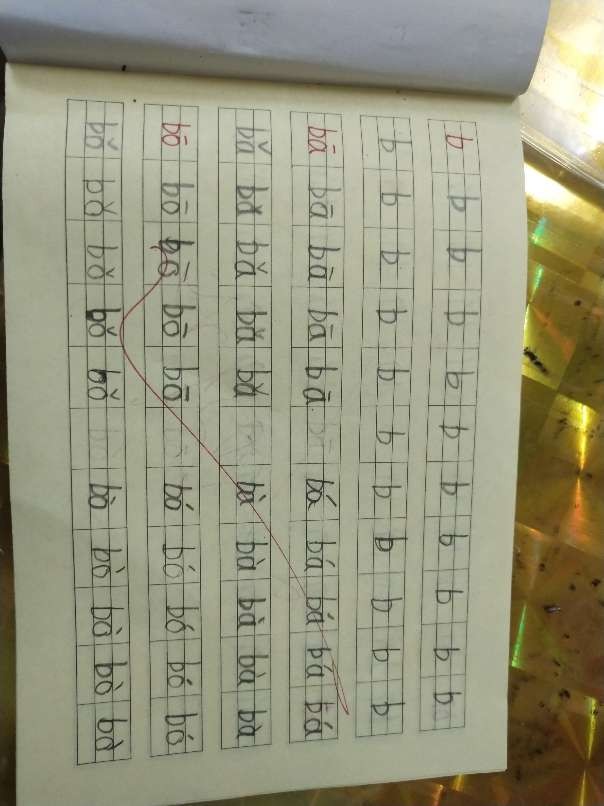 b b b b b b b b b b b
b b b b b b b b b b b
bā bā bā bā bā bá bá bá bá bá
bǎ bǎ bǎ bǎ bǎ bà bà bà bà bà
bō bō bō bō bō bó bó bó bó bó
bǒ bǒ bǒ bǒ bǒ bò bò bò bò bò